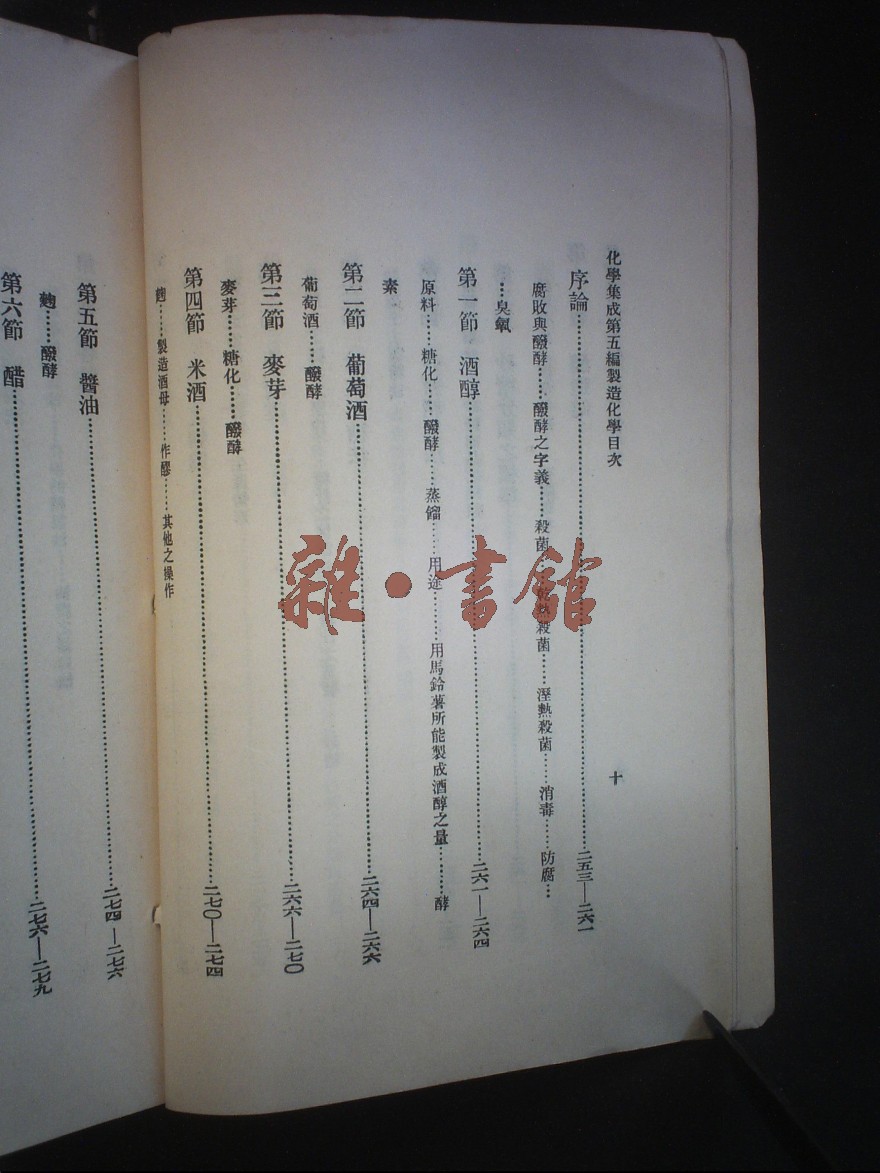 化學集成第五編製造化學目次
十
序論……二五三—二六一
腐敗與醱酵……醱酵之字義……殺菌……殺菌……溼熱殺菌……消毒……防腐…
…臭氧
第一節 酒醇……二六一—二六四
原料……糖化……醱酵……蒸餾……用途……用馬鈴薯所能製成酒醇之量……酵
素
第二節 葡萄酒……二六四—二六六
葡萄酒……醱酵
第三節 麥芽……二六六—二七〇
麥芽……糖化……醱酵
第四節 米酒……二七〇—二七四
麴……製造酒母……作醪……其他之操作
第五節 醬油……二七四—二七六
麴……醱酵
第六節 醋……二七六—二七九
雜·書館